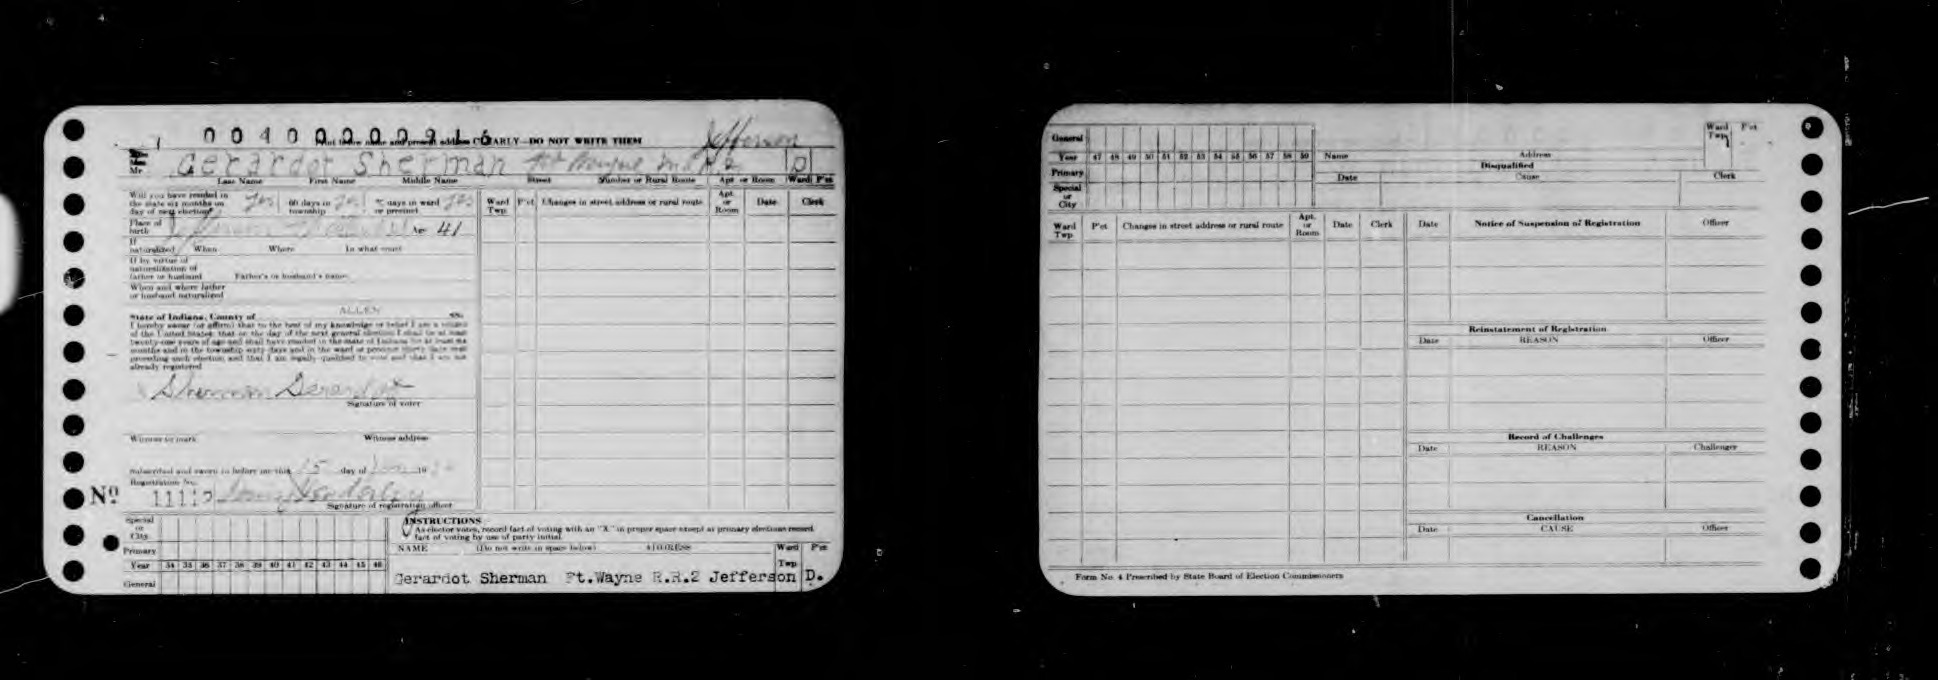 00400000916
Print below name and present address CLEARLY—DO NOT WRITE THEM
Jefferson
Miss
Mrs.
Mr. Gerardot Sherman Ft Wayne Ind R 2 D
Last Name First Name Middle Name Street Number or Rural Route Apt or Room Ward P'ct
Will you have resided in the state six months on day of next election? Yes 60 days in township Yes days in ward or precinct Yes
Place of birth Age 41
If naturalized When Where In what court
If by virtue of naturalization of father or husband Father's or husband's name
When and where father or husband naturalized
State of Indiana, County of ALLEN SS:
I hereby swear (or affirm) that to the best of my knowledge or belief I am a citizen
of the United States; that on the day of the next general election I shall be at least
twenty-one years of age and shall have resided in the state of Indiana for at least six
months and in the township sixty days and in the ward or precinct thirty days next
preceding such election and that I am legally qualified to vote and that I am not
already registered
Sherman Gerardot
Signature of voter
Witness to mark Witness address
Subscribed and sworn to before me this 15 day of 19
Registration No.
No 11112
Signature of registration officer
Ward Twp. P'ct Changes in street address or rural route Apt. or Room Date Clerk
Special or City
Primary
Year 34 35 36 37 38 39 40 41 42 43 44 45 46
General
INSTRUCTIONS
As elector votes, record fact of voting with an "X" in proper space except at primary elections record
fact of voting by use of party initial.
NAME (Do not write in space below) ADDRESS Ward Twp. P'ct
Gerardot Sherman Ft.Wayne R.R.2 Jefferson D.
General
Year 47 48 49 50 51 52 53 54 55 56 57 58 59
Primary
Special or City
Name Address Ward Twp. P'ct
Disqualified
Date Cause Clerk
Ward Twp. P'ct Changes in street address or rural route Apt. or Room Date Clerk
Date Notice of Suspension of Registration Officer
Reinstatement of Registration
Date REASON Officer
Record of Challenges
Date REASON Challenger
Cancellation
Date CAUSE Officer
Form No. 4 Prescribed by State Board of Election Commissioners